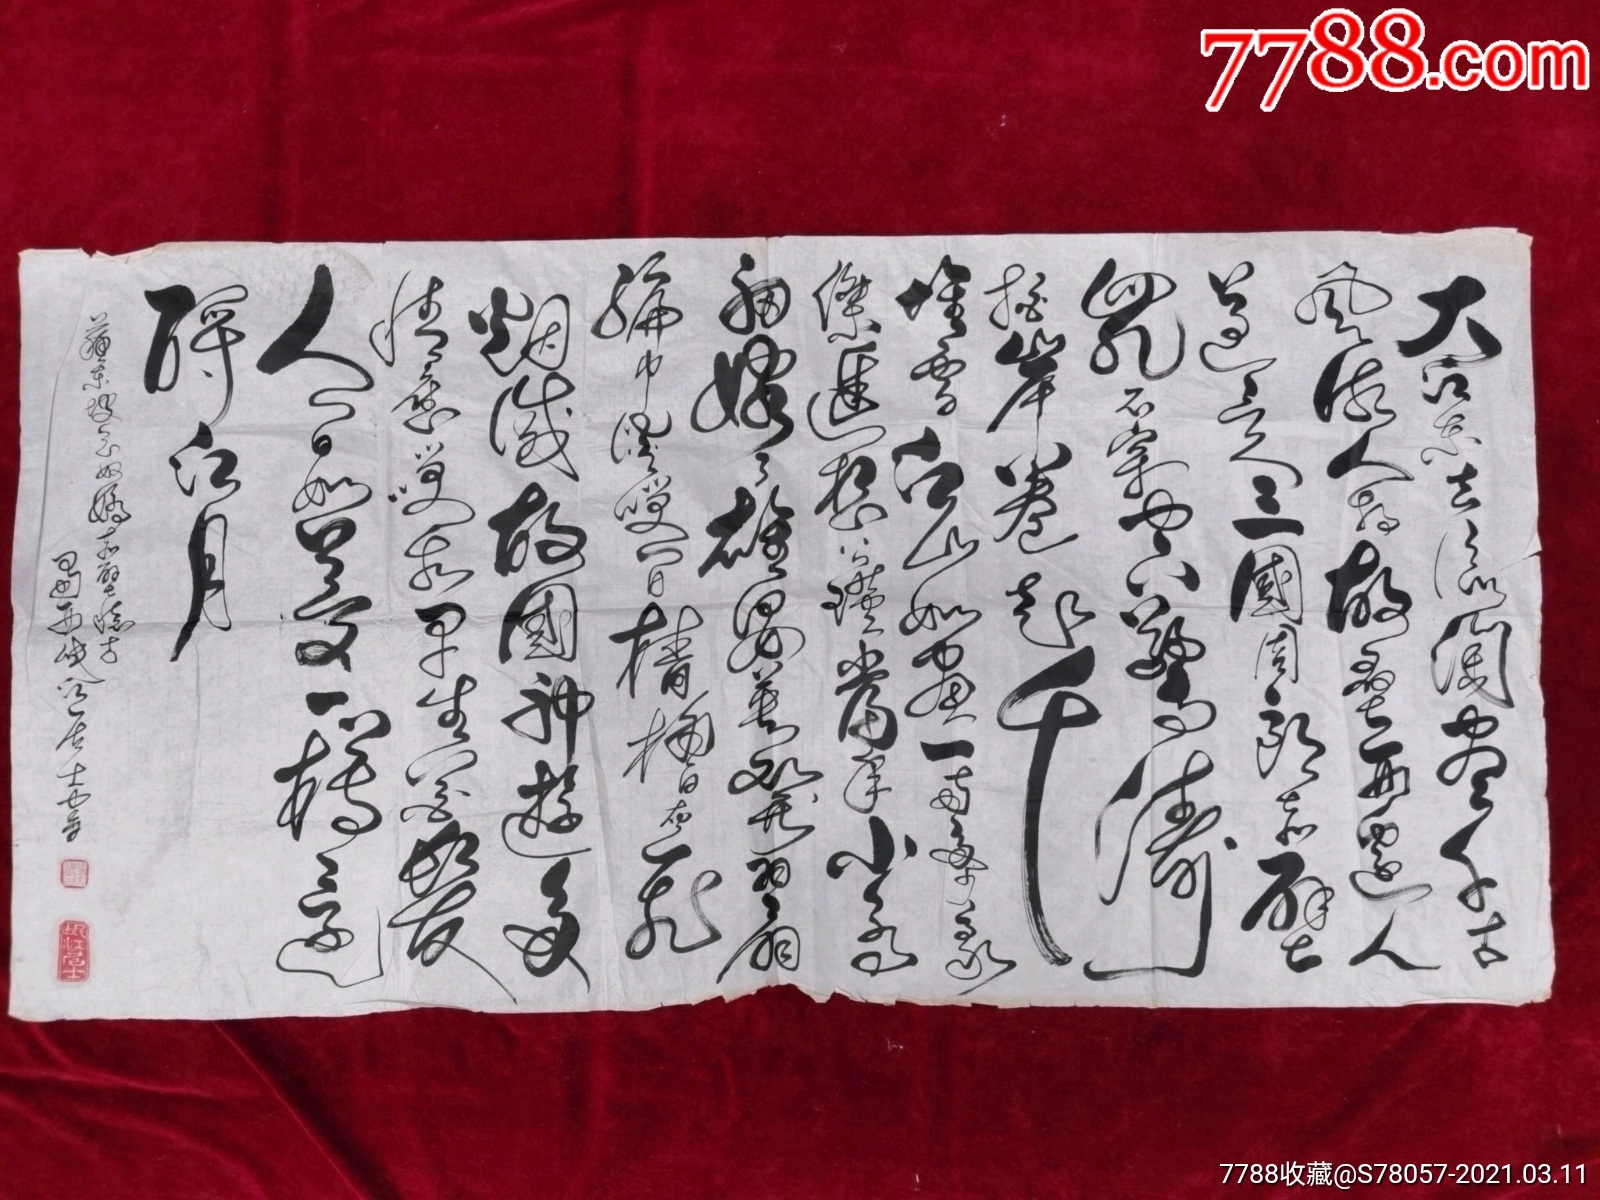 7788.com
大江东去浪淘尽千古
风流人物故垒西边人
道是三国周郎赤壁
乱石穿空惊涛
拍岸卷起千
堆雪江山如画一时多少豪
杰遥想公瑾当年小乔
初嫁了雄姿英发羽扇
纶巾谈笑间樯橹灰飞
烟灭故国神游多
情应笑我早生华发
人间如梦一樽还
酹江月
苏东坡念奴娇赤壁怀古
居士书
江居士
7788收藏@S78057-2021.03.11